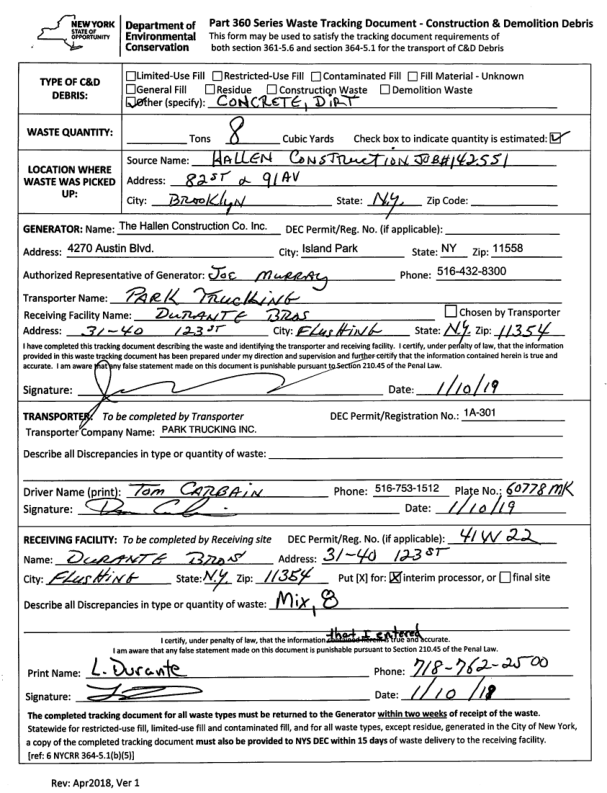 NEW YORK STATE OF OPPORTUNITY
Department of Environmental Conservation
Part 360 Series Waste Tracking Document - Construction & Demolition Debris
This form may be used to satisfy the tracking document requirements of
both section 361-5.6 and section 364-5.1 for the transport of C&D Debris
TYPE OF C&D DEBRIS:
☐Limited-Use Fill ☐Restricted-Use Fill ☐Contaminated Fill ☐Fill Material - Unknown
☐General Fill ☐Residue ☐Construction Waste ☐Demolition Waste
☑Other (specify): CONCRETE, DIRT
WASTE QUANTITY: Tons 8 Cubic Yards Check box to indicate quantity is estimated: ☑
LOCATION WHERE WASTE WAS PICKED UP:
Source Name: HALLEN CONSTRUCTION JOB#142551
Address: 82ST & 91AV
City: BROOKLYN State: N.Y. Zip Code:
GENERATOR: Name: The Hallen Construction Co. Inc. DEC Permit/Reg. No. (if applicable):
Address: 4270 Austin Blvd. City: Island Park State: NY Zip: 11558
Authorized Representative of Generator: JOE MURRAY Phone: 516-432-8300
Transporter Name: PARK TRUCKING
Receiving Facility Name: DURANTE BROS ☐Chosen by Transporter
Address: 31-40 123ST City: FLUSHING State: N.Y. Zip: 11354
I have completed this tracking document describing the waste and identifying the transporter and receiving facility. I certify, under penalty of law, that the information
provided in this waste tracking document has been prepared under my direction and supervision and further certify that the information contained herein is true and
accurate. I am aware that any false statement made on this document is punishable pursuant to Section 210.45 of the Penal Law.
Signature: Date: 1/10/19
TRANSPORTER: To be completed by Transporter DEC Permit/Registration No.: 1A-301
Transporter Company Name: PARK TRUCKING INC.
Describe all Discrepancies in type or quantity of waste:
Driver Name (print): TOM CARBAIN Phone: 516-753-1512 Plate No.: 60778MK
Signature: Date: 1/10/19
RECEIVING FACILITY: To be completed by Receiving site DEC Permit/Reg. No. (if applicable): 41W22
Name: DURANTE BROS Address: 31-40 123ST
City: FLUSHING State: N.Y. Zip: 11354 Put [X] for: ☒interim processor, or ☐final site
Describe all Discrepancies in type or quantity of waste: Mix, 8
I certify, under penalty of law, that the information that I entered is true and accurate.
I am aware that any false statement made on this document is punishable pursuant to Section 210.45 of the Penal Law.
Print Name: L. Durante Phone: 718-762-2500
Signature: Date: 1/10/18
The completed tracking document for all waste types must be returned to the Generator within two weeks of receipt of the waste.
Statewide for restricted-use fill, limited-use fill and contaminated fill, and for all waste types, except residue, generated in the City of New York,
a copy of the completed tracking document must also be provided to NYS DEC within 15 days of waste delivery to the receiving facility.
[ref: 6 NYCRR 364-5.1(b)(5)]
Rev: Apr2018, Ver 1